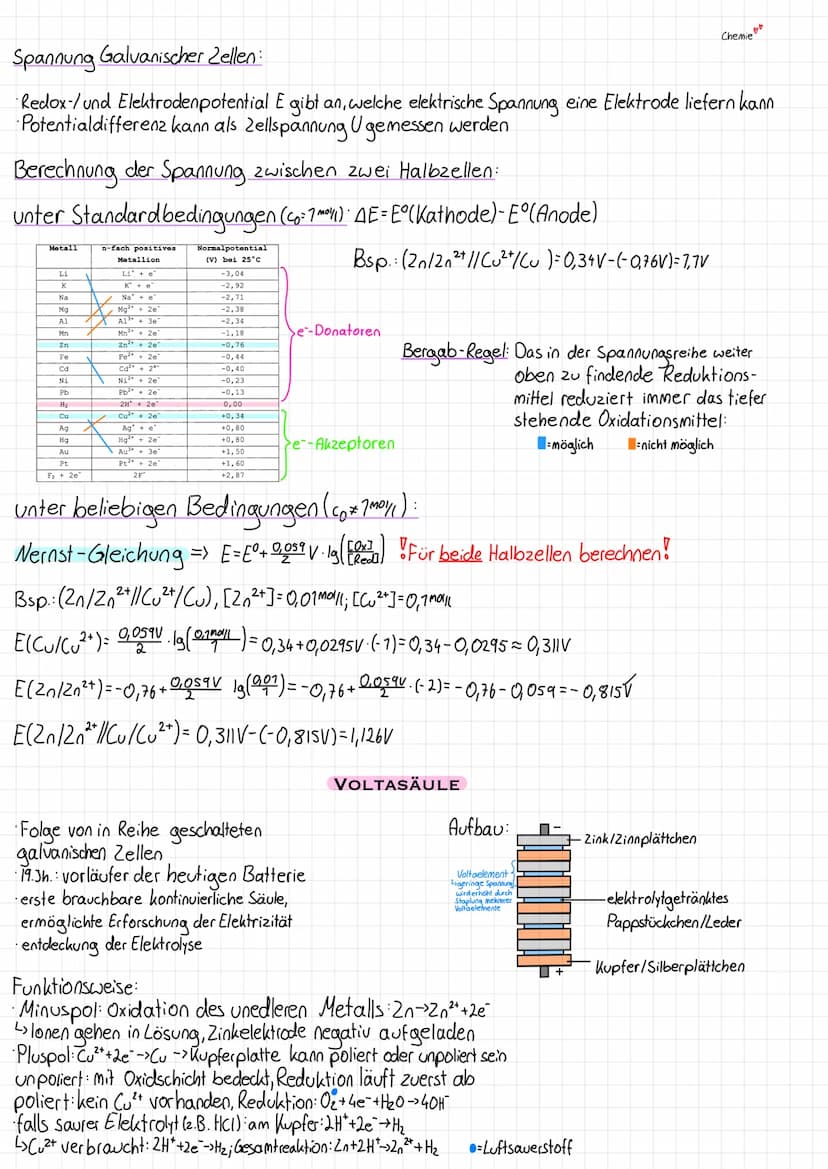 Chemie
Spannung Galvanischer Zellen:
· Redox-/ und Elektrodenpotential E gibt an, welche elektrische Spannung eine Elektrode liefern kann
· Potentialdifferenz kann als Zellspannung U gemessen werden
Berechnung der Spannung zwischen zwei Halbzellen:
unter Standardbedingungen (c₀=1mol/l): ΔE=E⁰(Kathode)-E⁰(Anode)
Bsp.: (Zn/Zn²⁺//Cu²⁺/Cu )=0,34V-(-0,76V)=1,1V
Metall n-fach positives Metallion Normalpotential (V) bei 25°C
Li Li⁺ + e⁻ -3,04
K K⁺ + e⁻ -2,92
Na Na⁺ + e⁻ -2,71
Mg Mg²⁺ + 2e⁻ -2,38
Al Al³⁺ + 3e⁻ -2,34
Mn Mn²⁺ + 2e⁻ -1,18
Zn Zn²⁺ + 2e⁻ -0,76
Fe Fe²⁺ + 2e⁻ -0,44
Cd Cd²⁺ + 2⁻ -0,40
Ni Ni²⁺ + 2e⁻ -0,23
Pb Pb²⁺ + 2e⁻ -0,13
H₂ 2H⁺ + 2e⁻ 0,00
Cu Cu²⁺ + 2e⁻ +0,34
Ag Ag⁺ + e⁻ +0,80
Hg Hg²⁺ + 2e⁻ +0,80
Au Au³⁺ + 3e⁻ +1,50
Pt Pt²⁺ + 2e⁻ +1,60
F₂ + 2e⁻ 2F⁻ +2,87
e⁻-Donatoren
e⁻-Akzeptoren
Bergab-Regel: Das in der Spannungsreihe weiter
oben zu findende Reduktions-
mittel reduziert immer das tiefer
stehende Oxidationsmittel:
=möglich =nicht möglich
unter beliebigen Bedingungen (c₀≠1mol/l):
Nernst-Gleichung => E=E⁰+0,059/2 V·lg([Ox]/[Red]) !Für beide Halbzellen berechnen!
Bsp.: (Zn/Zn²⁺//Cu²⁺/Cu), [Zn²⁺]=0,01mol/l; [Cu²⁺]=0,1mol/l
E(Cu/Cu²⁺)= 0,059V/2 ·lg(0,1mol/l/1)= 0,34+0,0295V·(-1)=0,34-0,0295≈0,311V
E(Zn/Zn²⁺)=-0,76+0,059V/2 lg(0,01/1)=-0,76+0,059V/2·(-2)=-0,76-0,059=-0,815V
E(Zn/Zn²⁺//Cu/Cu²⁺)= 0,311V-(-0,815V)=1,126V
VOLTASÄULE
· Folge von in Reihe geschalteten
galvanischen Zellen
· 19.Jh.: vorläufer der heutigen Batterie
· erste brauchbare kontinuierliche Säule,
ermöglichte Erforschung der Elektrizität
· entdeckung der Elektrolyse
Aufbau:
-
Zink/Zinnplättchen
Voltaelement
↳geringe Spannung
wird erhöht durch
Staplung mehrerer
Voltaelemente
elektrolytgetränktes
Pappstückchen/Leder
Kupfer/Silberplättchen
+
Funktionsweise:
· Minuspol: Oxidation des unedleren Metalls: Zn→Zn²⁺+2e⁻
↳Ionen gehen in Lösung, Zinkelektrode negativ aufgeladen
· Pluspol: Cu²⁺+2e⁻→Cu → Kupferplatte kann poliert oder unpoliert sein
unpoliert: mit Oxidschicht bedeckt, Reduktion läuft zuerst ab
poliert: kein Cu²⁺ vorhanden, Reduktion: O₂+4e⁻+H₂O→4OH⁻
· falls saurer Elektrolyt (z.B. HCl): am Kupfer: 2H⁺+2e⁻→H₂
↳Cu²⁺ verbraucht: 2H⁺+2e⁻→H₂; Gesamtreaktion: Zn+2H⁺→Zn²⁺+H₂ =Luftsauerstoff